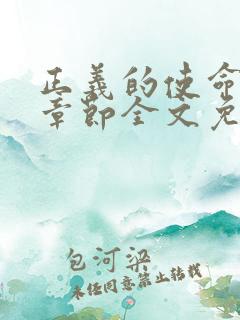 正义的使命
章节全文免
包河梁
未经同意禁止转载